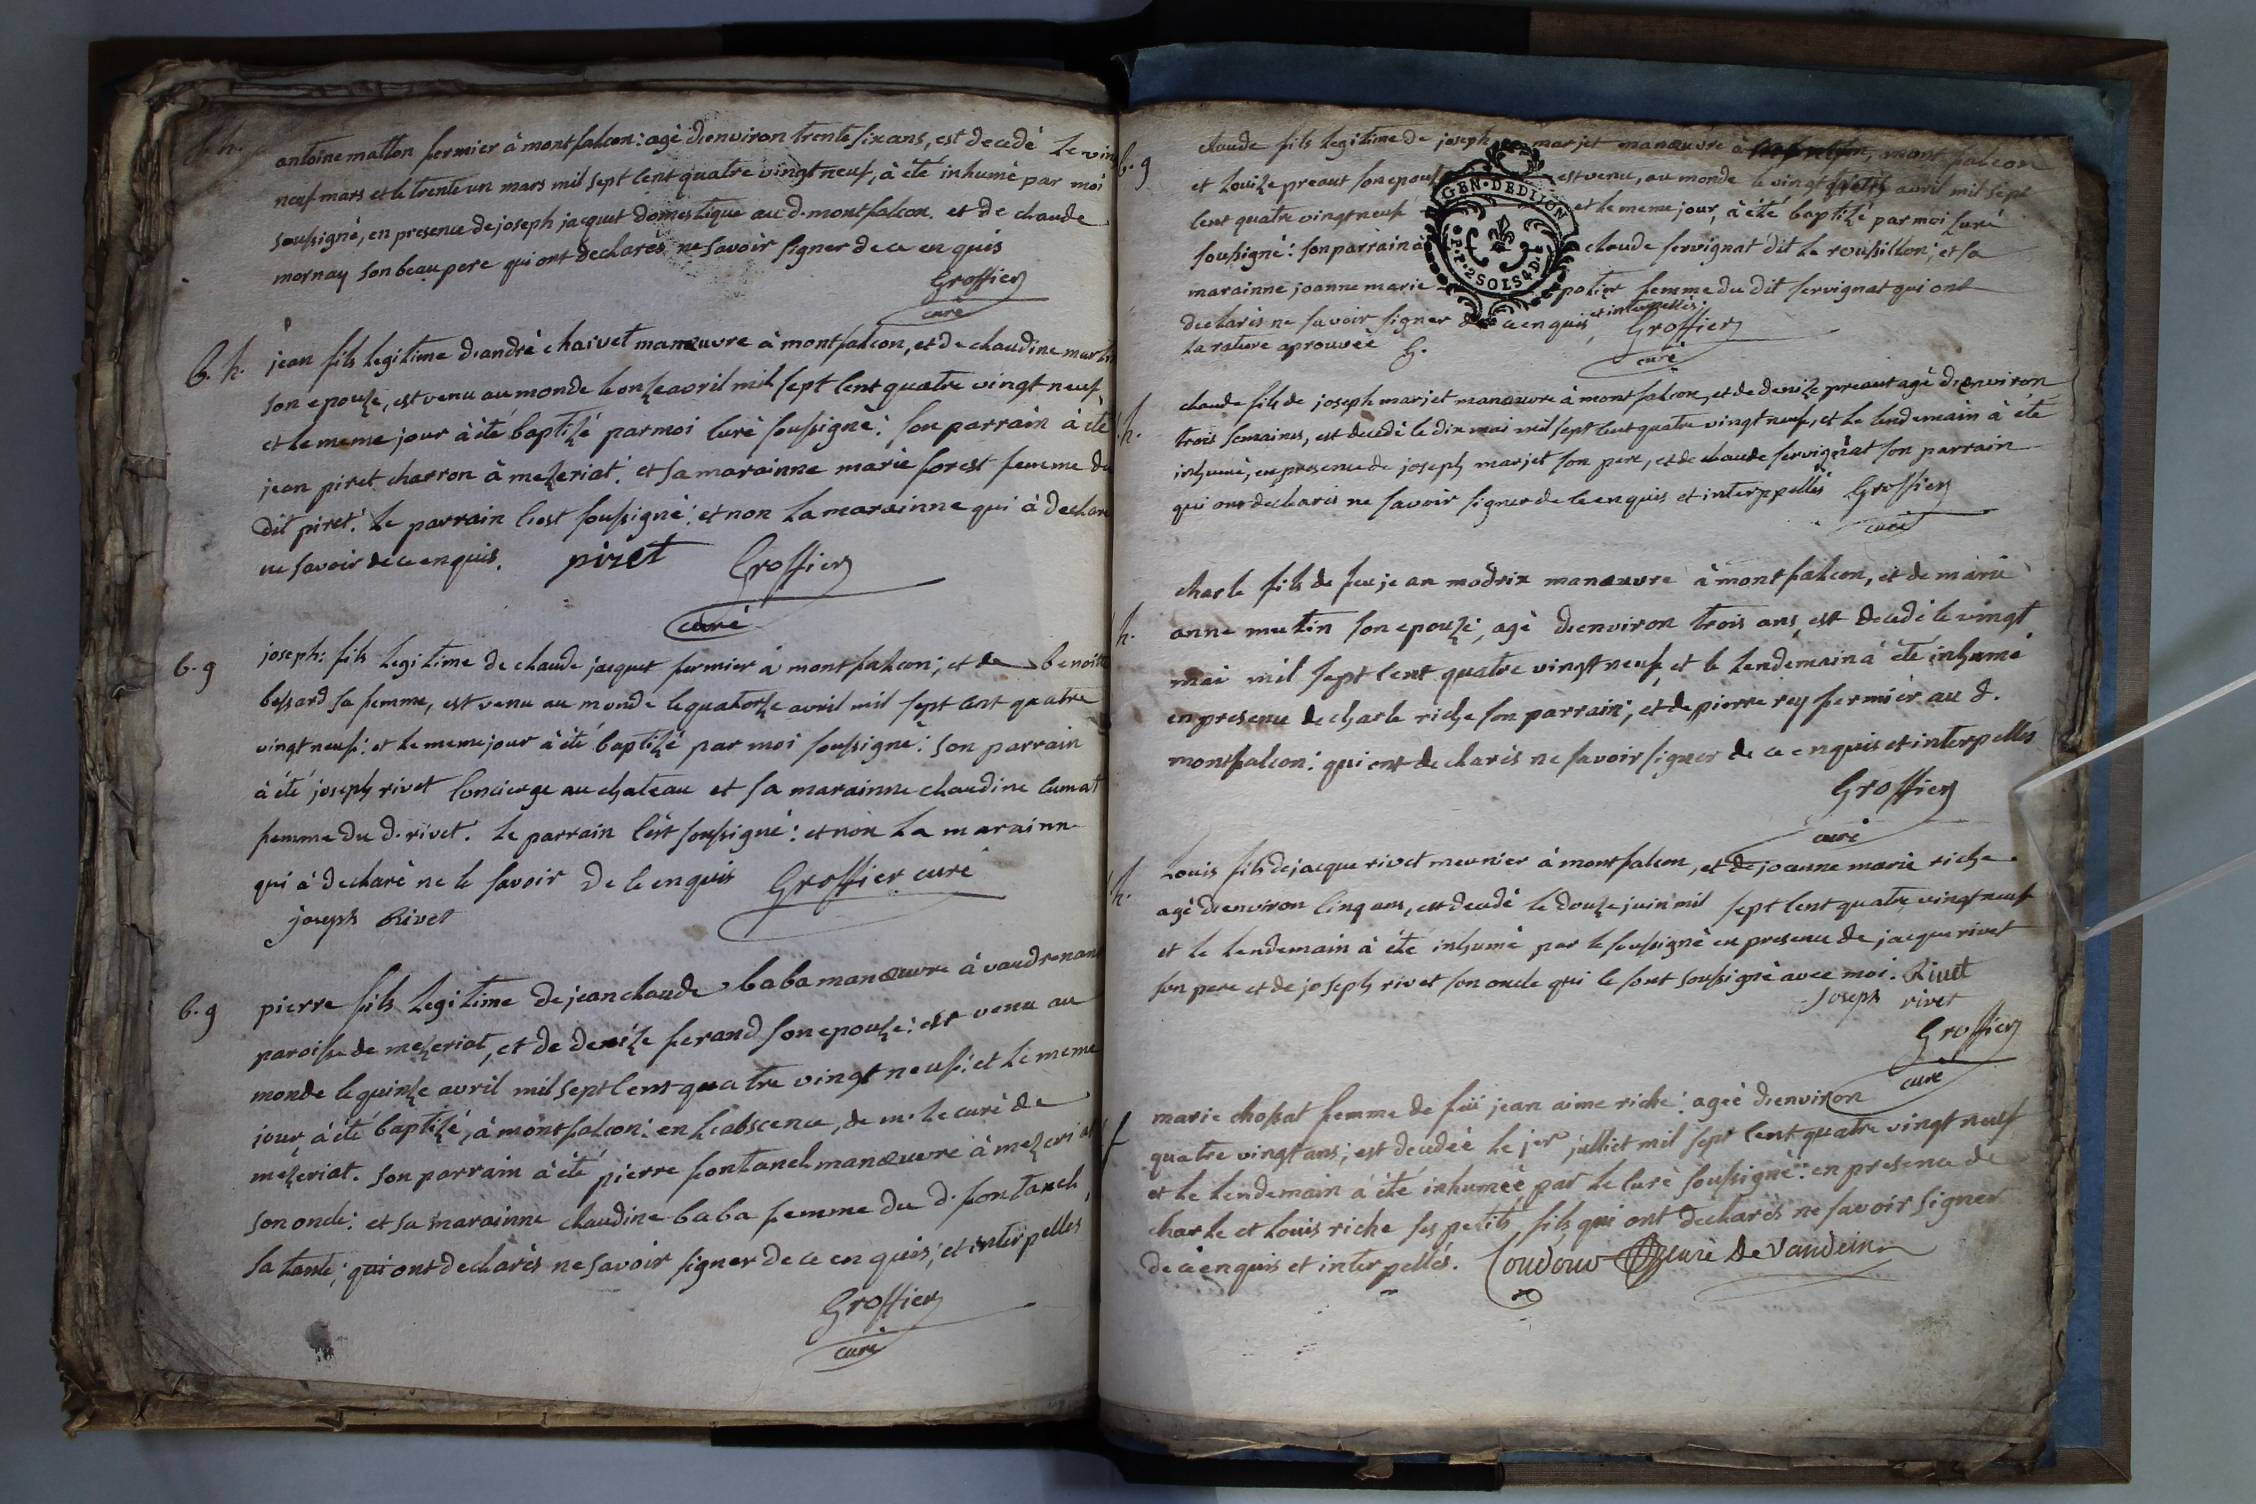 h.
antoine matton fermier à montfalcon: agé d'environ trente six ans, est decedé le vin
neuf mars et le trente un mars mil sept cent quatre vingt neuf, à été inhumé par moi
soussigné, en presence de joseph jacquet domestique au d. montfalcon. et de claude
mornay son beau pere qui ont declarés ne savoir signer de ce enquis
Groffier
curé
b. h. jean fils legitime d'andré chaivet manœuvre à montfalcon, et de claudine mart
son epouze, est venu au monde le onze avril mil sept cent quatre vingt neuf
et le meme jour à été baptizé par moi curé soussigné: son parrain à été
jean piret charron à mezeriat: et sa marainne marie forest femme du
dit piret. le parrain s'est soussigné: et non la marainne qui à declaré
ne savoir de ce enquis. piret Groffier
curé
b. g joseph: fils legitime de claude jacquet fermier à montfalcon; et de benoitte
bessard sa femme, est venu au monde le quatorze avril mil sept cent quatre
vingt neuf: et le meme jour à été baptizé par moi soussigné: son parrain
à été joseph rivet concierge au chateau et sa marainne claudine cumat
femme du d. rivet. le parrain s'est soussigné: et non la marainne
qui à declaré ne le savoir de ce enquis Groffier curé
joseph Rivet
b. g pierre fils legitime de jean claude baba manœuvre à vaudrenan
paroisse de mezeriat, et de denize ferand son epouze: est venu au
monde le quinze avril mil sept cent quatre vingt neuf: et le meme
jour, à été baptizé, à montfalcon: en l'abscence, de mr. le curé de
mezeriat. son parrain à été pierre fontanel manœuvre à mezeriat
son oncle: et sa marainne claudine baba femme du d. fontanel,
sa tante; qui ont declarés ne savoir signer de ce enquis; et interpellés
Groffier
curé
b. g claude fils legitime de joseph marjet manœuvre à montfalcon
et Louize preaut son epouse est venu, au monde le vingt avril mil sept
cent quatre vingt neuf et le meme jour, à été baptizé par moi curé
soussigné: son parrain à claude servignat dit le roussillon; et sa
marainne joanne marie potier femme du dit servignat qui ont
declarés ne savoir signer de ce enquis et interpellés. Groffier
la rature aprouvée G. curé
GEN. DE DIJON
P.P. 2 SOLS 4 D.
h. claude fils de joseph marjet manœuvre à montfalcon, et de denize preaut agé d'environ
trois semaines, est decedé le dix mai mil sept cent quatre vingt neuf, et le lendemain à été
inhumé, en presence de joseph marjet son pere, et de claude servignat son parrain
qui ont declarés ne savoir signer de ce enquis et interppellés Groffier
curé
charle fils de feu jean modrix manœuvre à montfalcon, et de marie
h. anne mutin son epouze, agé d'environ trois ans, est decedé le vingt
mai mil sept cent quatre vingt neuf, et le lendemain à été inhumé
en presence de charle riche son parrain; et de pierre rey fermier au d.
montfalcon: qui ont declarés ne savoir signer de ce enquis et interpellés
Groffier
curé
h. Louis fils de jacque rivet meunier à montfalcon, et de joanne marie riche
agé d'environ cinq ans, est decedé le douze juin mil sept cent quatre vingt neuf
et le lendemain à été inhumé par le soussigné en presence de jacque rivet
son pere et de joseph rivet son oncle qui se sont soussigné avec moi. Rivet
Joseph rivet
Groffier
curé
f marie chossat femme de feü jean aime riche: ageé d'environ
quatre vingt ans; est decedeé le jer julliet mil sept cent quatre vingt neuf
et le lendemain à été inhumeé par le curé soussigné: en presence de
charle et Louis riche ses petits fils, qui ont declarés ne savoir signer
de ce enquis et interpellés. curé de Vandeins